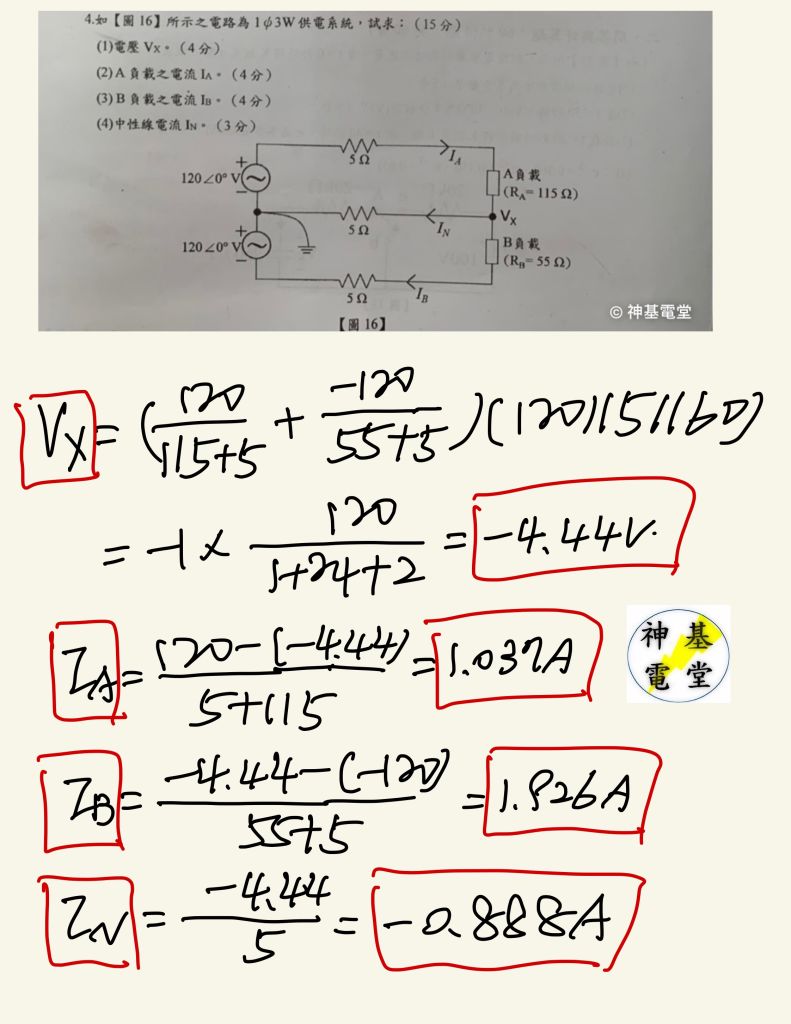 4.如【圖 16】所示之電路為 1ϕ3W 供電系統，試求：（15 分）
(1)電壓 Vx。（4 分）
(2)A 負載之電流 IA。（4 分）
(3)B 負載之電流 IB。（4 分）
(4)中性線電流 IN。（3 分）
+
120∠0° V
−
5 Ω
IA
A 負載
(RA= 115 Ω)
5 Ω
IN
Vx
+
120∠0° V
−
B 負載
(RB= 55 Ω)
5 Ω
IB
【圖 16】
© 神基電堂
Vx = (120/(115+5) + -120/(55+5))(120//5//60)
= -1 × 120/(1+24+2) = -4.44V.
神 基
電 堂
IA = (120-(-4.44))/(5+115) = 1.037A
IB = (-4.44-(-120))/(55+5) = 1.926A
IN = -4.44/5 = -0.888A